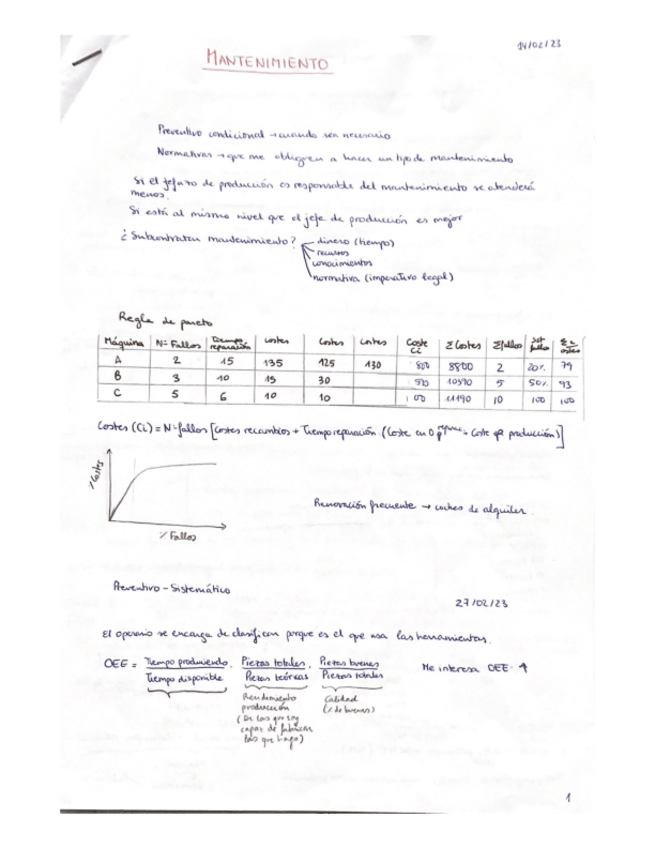 14/02/23
MANTENIMIENTO
Preventivo condicional → cuando sea necesario
Normativas → que me obliguen a hacer un tipo de mantenimiento
Si el jefazo de producción es responsable del mantenimiento se atenderá
menos.
Si está al mismo nivel que el jefe de producción es mejor
¿Subcontratar mantenimiento? dinero (tiempo)
recursos
conocimientos
normativa (imperativo legal)
Regla de pareto
Máquina Nº Fallos Tiempo reparación costes costes costes Coste Ci Σ Costes Σ fallos
A 2 15 135 125 130 8800 2 20% 79
B 3 10 15 30 10590 5 50% 93
C 5 6 10 10 11190 10 100 100
Costes (Ci) = Nº fallos [costes recambios + Tiempo reparación . (Coste producción)]
% Costes
Renovación frecuente → coches de alquiler.
% Fallos
Preventivo - Sistemático
27/02/23
El operario se encarga de clasificar porque es el que usa las herramientas.
OEE = Tiempo produciendo . Piezas totales . Piezas buenas Me interesa OEE ↑
Tiempo disponible Piezas teóricas Piezas totales
Rendimiento Calidad
producción (% de buenas)
(De las que soy
capaz de fabricar
las que hago)
1